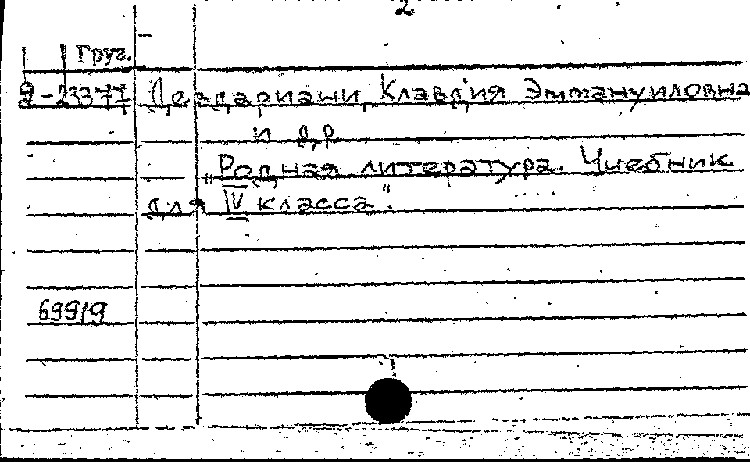 2
Груз.
2-23377 Девдариани Клавдия Эммануиловна
и др
„Родная литература. Учебник
для IV класса".
699/9